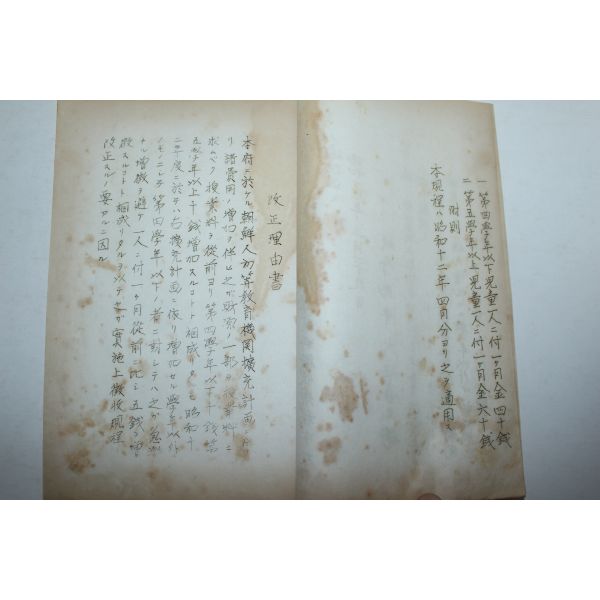 一 第四學年以下児童一人ニ付一ヶ月金四十銭
二 第五學年以上児童一人ニ付一ヶ月金六十銭
附則
本規程ハ昭和十二年四月分ヨリ之ヲ適用ス
改正理由書
本府ニ於ケル朝鮮人初等教育機関擴充計画ニ
リ諸費用ノ増加ヲ伴ヒ之ガ財源ノ一部ヲ授業料ニ
求ムベク授業料ヲ從前ヨリ第四學年以下十銭第
五學年以上十銭増加スルコトト相成リ 昭和十
二年度ニ於テハ右擴充計画ニ依リ増加セル學年以外
ノモノニシテ第四學年以下ノ者ニ對シテハ之ガ急激
ナル増徴ヲ避ケ一人ニ付一ヶ月從前ニ比シ五銭ヲ増
徴スルコトト相成リタルヲ以テ 実施上徴收規程
改正スルノ要アルニ因ル